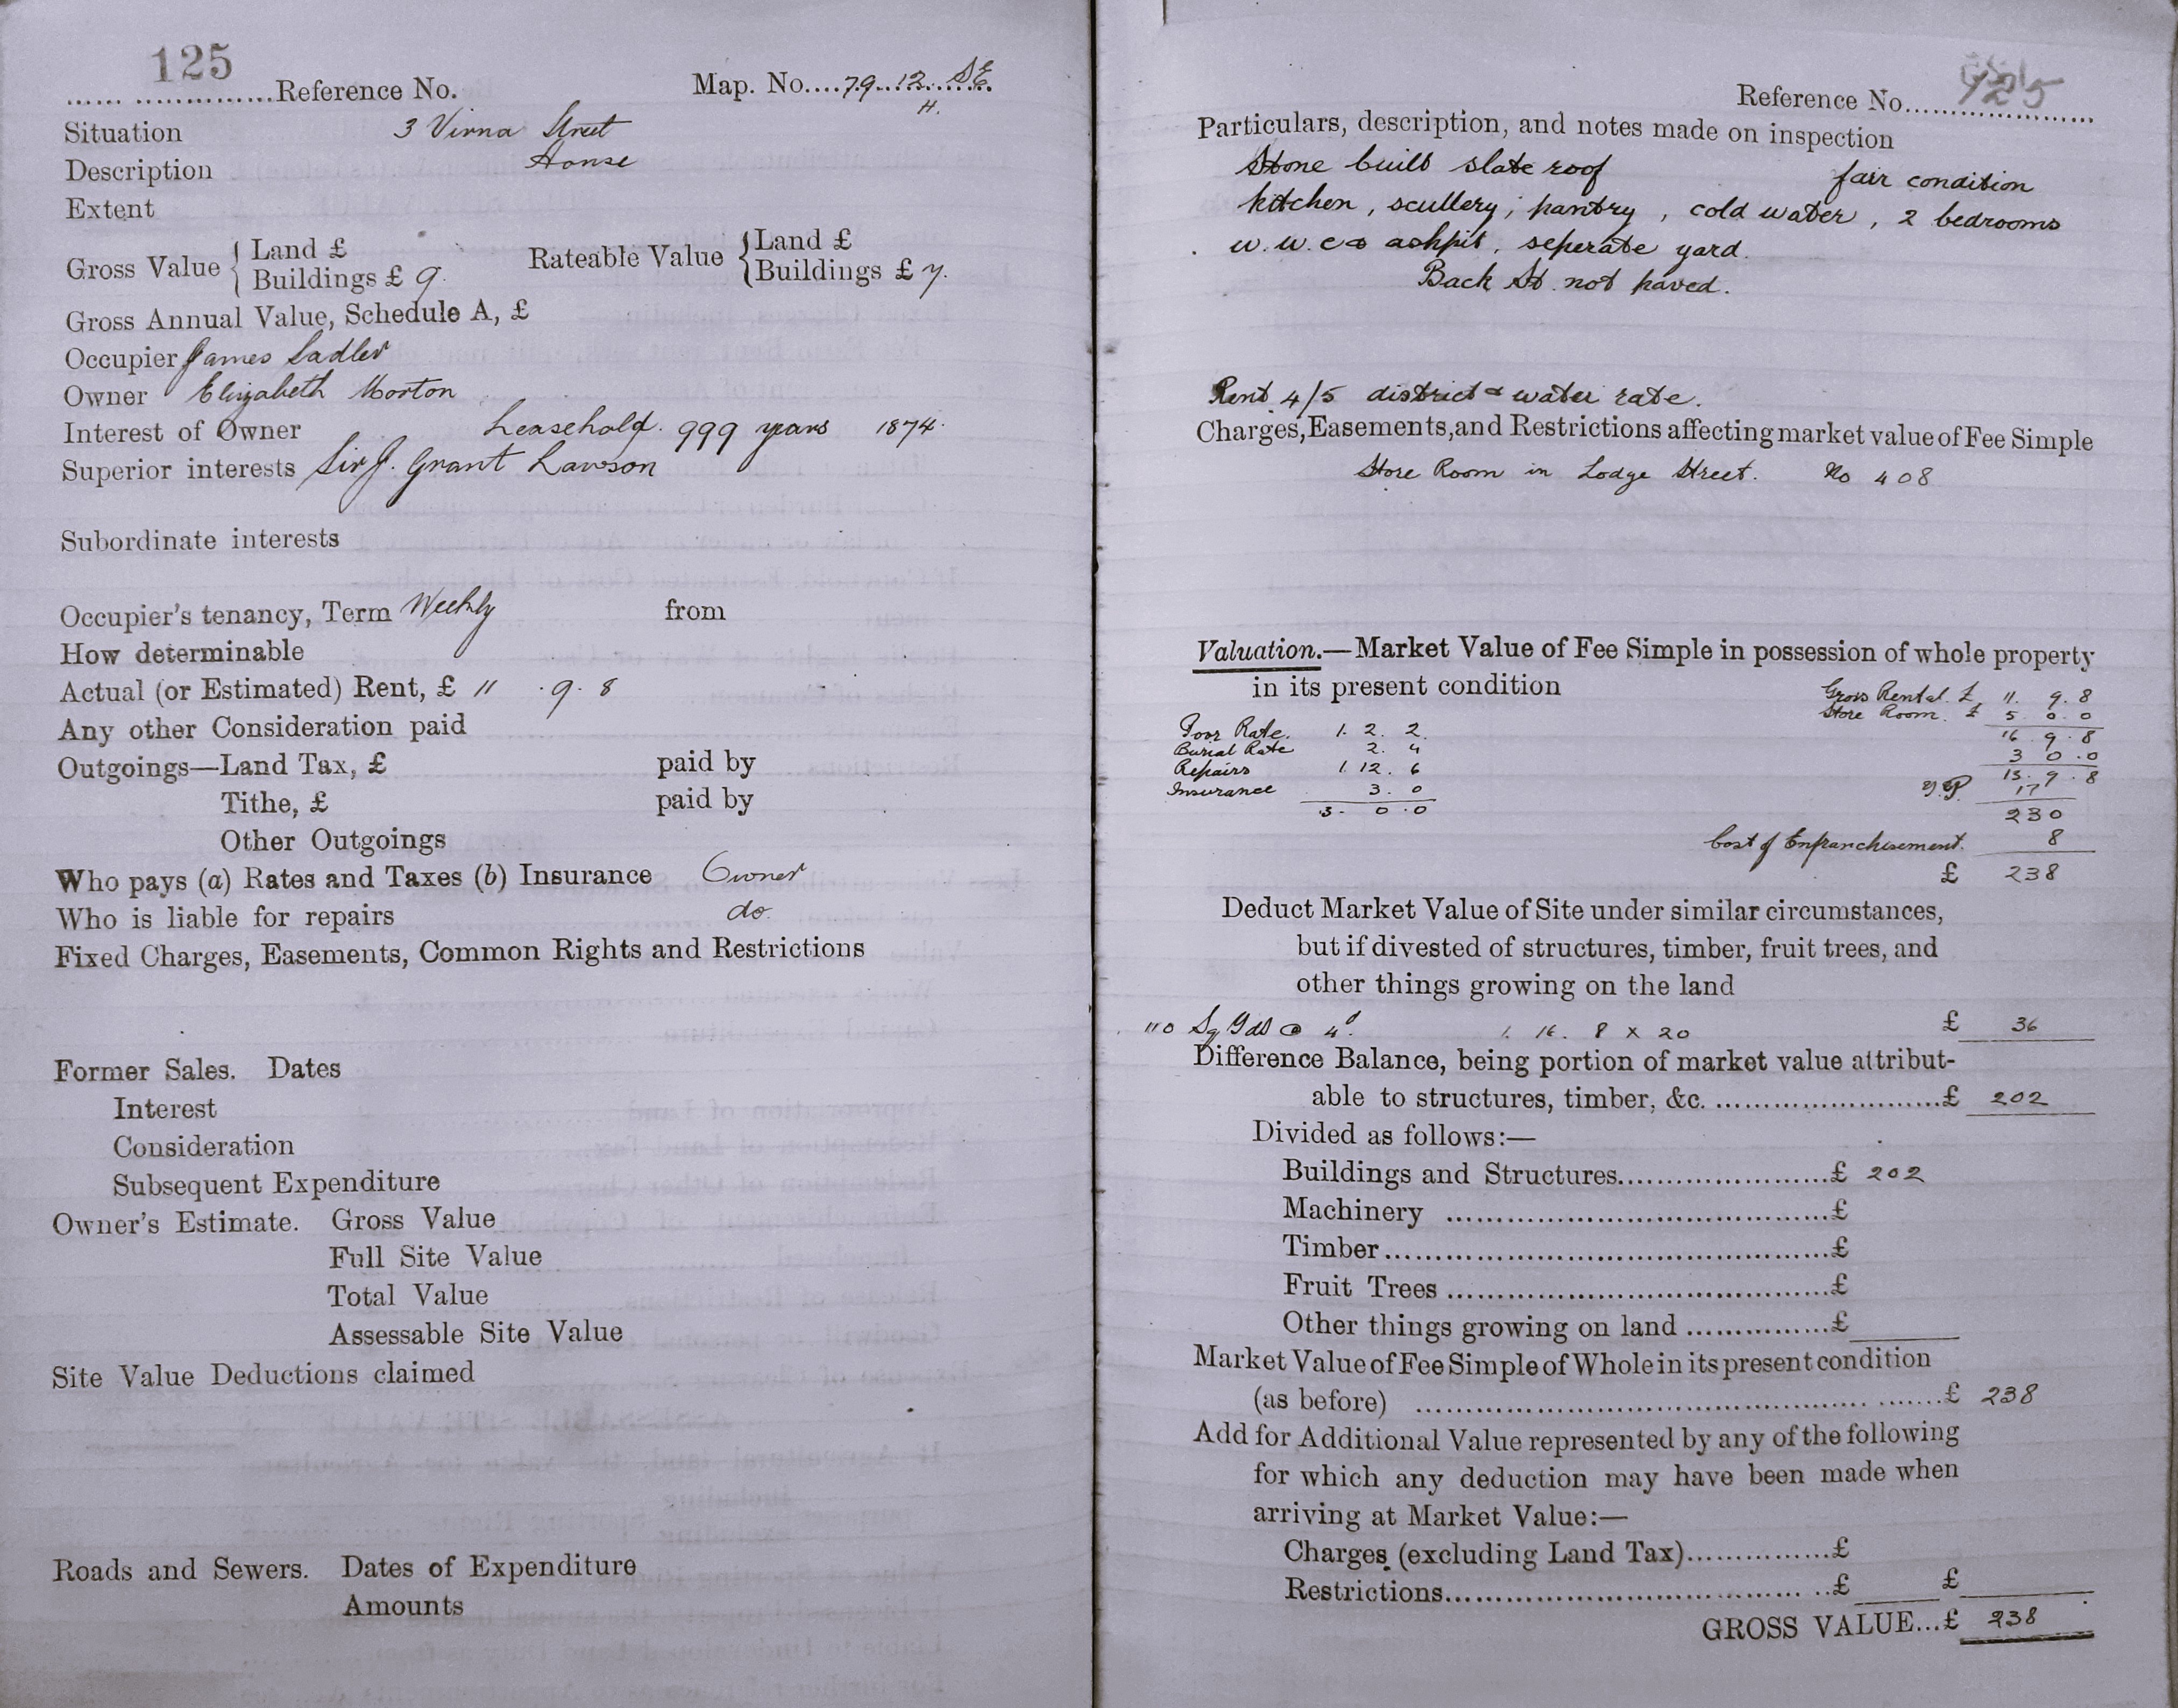 125
...... ..............Reference No. Map. No....79...12...S.E.
H.
Situation 3 Virna Street
Description House
Extent
Gross Value { Land £ Rateable Value { Land £
Buildings £ 9. Buildings £ 7.
Gross Annual Value, Schedule A, £
Occupier James Sadler
Owner Elizabeth Morton
Interest of Owner Leasehold. 999 years 1874.
Superior interests Sir J. Grant Lawson
Subordinate interests
Occupier's tenancy, Term Weekly from
How determinable
Actual (or Estimated) Rent, £ 11 . 9. 8
Any other Consideration paid
Outgoings—Land Tax, £ paid by
Tithe, £ paid by
Other Outgoings
Who pays (a) Rates and Taxes (b) Insurance Owner
Who is liable for repairs do.
Fixed Charges, Easements, Common Rights and Restrictions
Former Sales. Dates
Interest
Consideration
Subsequent Expenditure
Owner's Estimate. Gross Value
Full Site Value
Total Value
Assessable Site Value
Site Value Deductions claimed
Roads and Sewers. Dates of Expenditure
Amounts
Reference No......125
Particulars, description, and notes made on inspection
Stone built slate roof fair condition
kitchen, scullery, pantry, cold water, 2 bedrooms
w.w.c & ashpit, seperate yard.
Back St. not paved.
Rent 4/5 district & water rate.
Charges, Easements, and Restrictions affecting market value of Fee Simple
Store Room in Lodge Street. No 408
Valuation.—Market Value of Fee Simple in possession of whole property
in its present condition
Gross Rental. £ 11. 9. 8
Store Room. £ 5. 0. 0
Poor Rate. 1. 2. 2. 16. 9. 8
Burial Rate 2. 4 3 0. 0
Repairs 1. 12. 6 13. 9. 8
Insurance 3. 0 Y.P. 17
3. 0. 0 230
Cost of Enfranchisement. 8
£ 238
Deduct Market Value of Site under similar circumstances,
but if divested of structures, timber, fruit trees, and
other things growing on the land
110 Sq Yds @ 4d. 1. 16. 8 x 20 £ 36
Difference Balance, being portion of market value attribut-
able to structures, timber, &c. ............................£ 202
Divided as follows:—
Buildings and Structures.......................£ 202
Machinery ..........................................£
Timber.................................................£
Fruit Trees ..........................................£
Other things growing on land ...............£
Market Value of Fee Simple of Whole in its present condition
(as before) ............................................................£ 238
Add for Additional Value represented by any of the following
for which any deduction may have been made when
arriving at Market Value:—
Charges (excluding Land Tax)...............£
Restrictions..........................................£ £
GROSS VALUE...£ 238